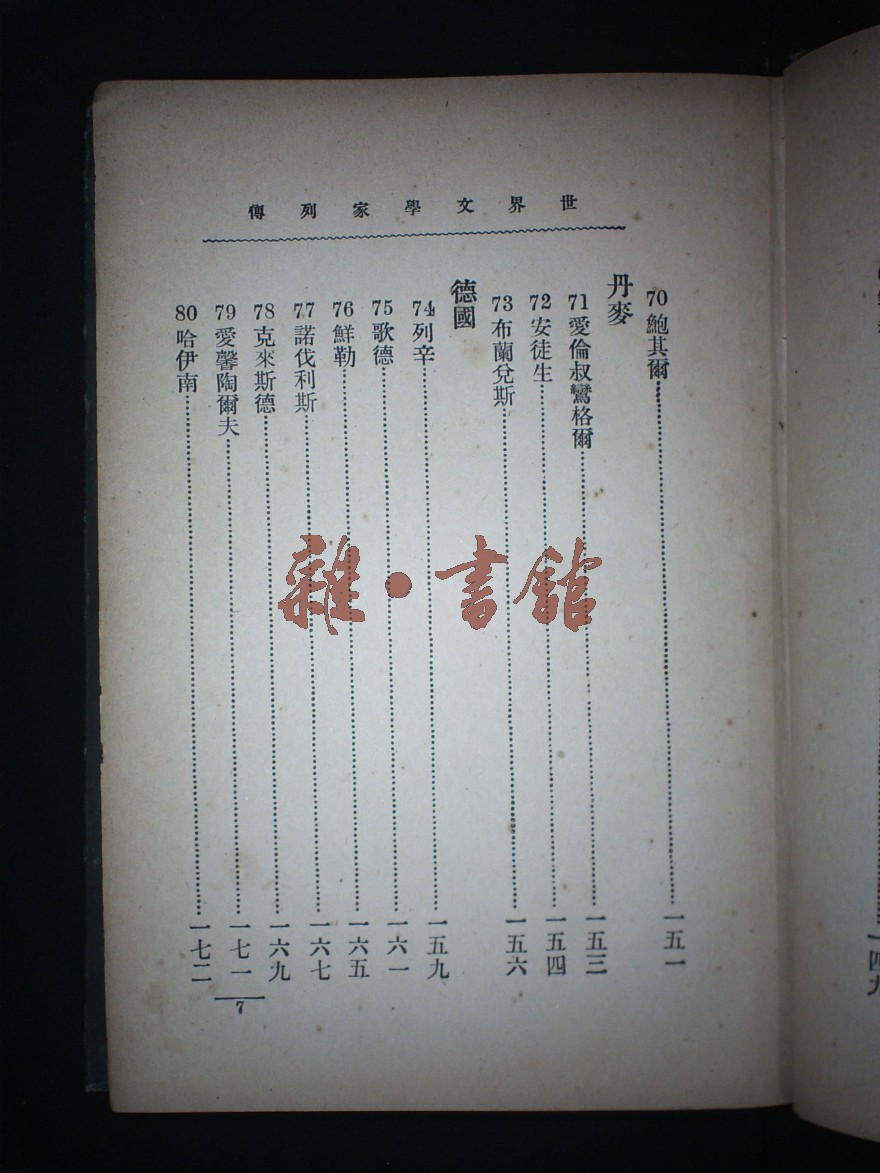 世界文學家列傳
70 鮑其爾……一五一
丹麥
71 愛倫叔鸞格爾……一五三
72 安徒生……一五四
73 布蘭兌斯……一五六
德國
74 列辛……一五九
75 歌德……一六一
76 鮮勒……一六五
77 諾伐利斯……一六七
78 克來斯德……一六九
79 愛馨陶爾夫……一七一
80 哈伊南……一七二
7
雜·書館
一四九